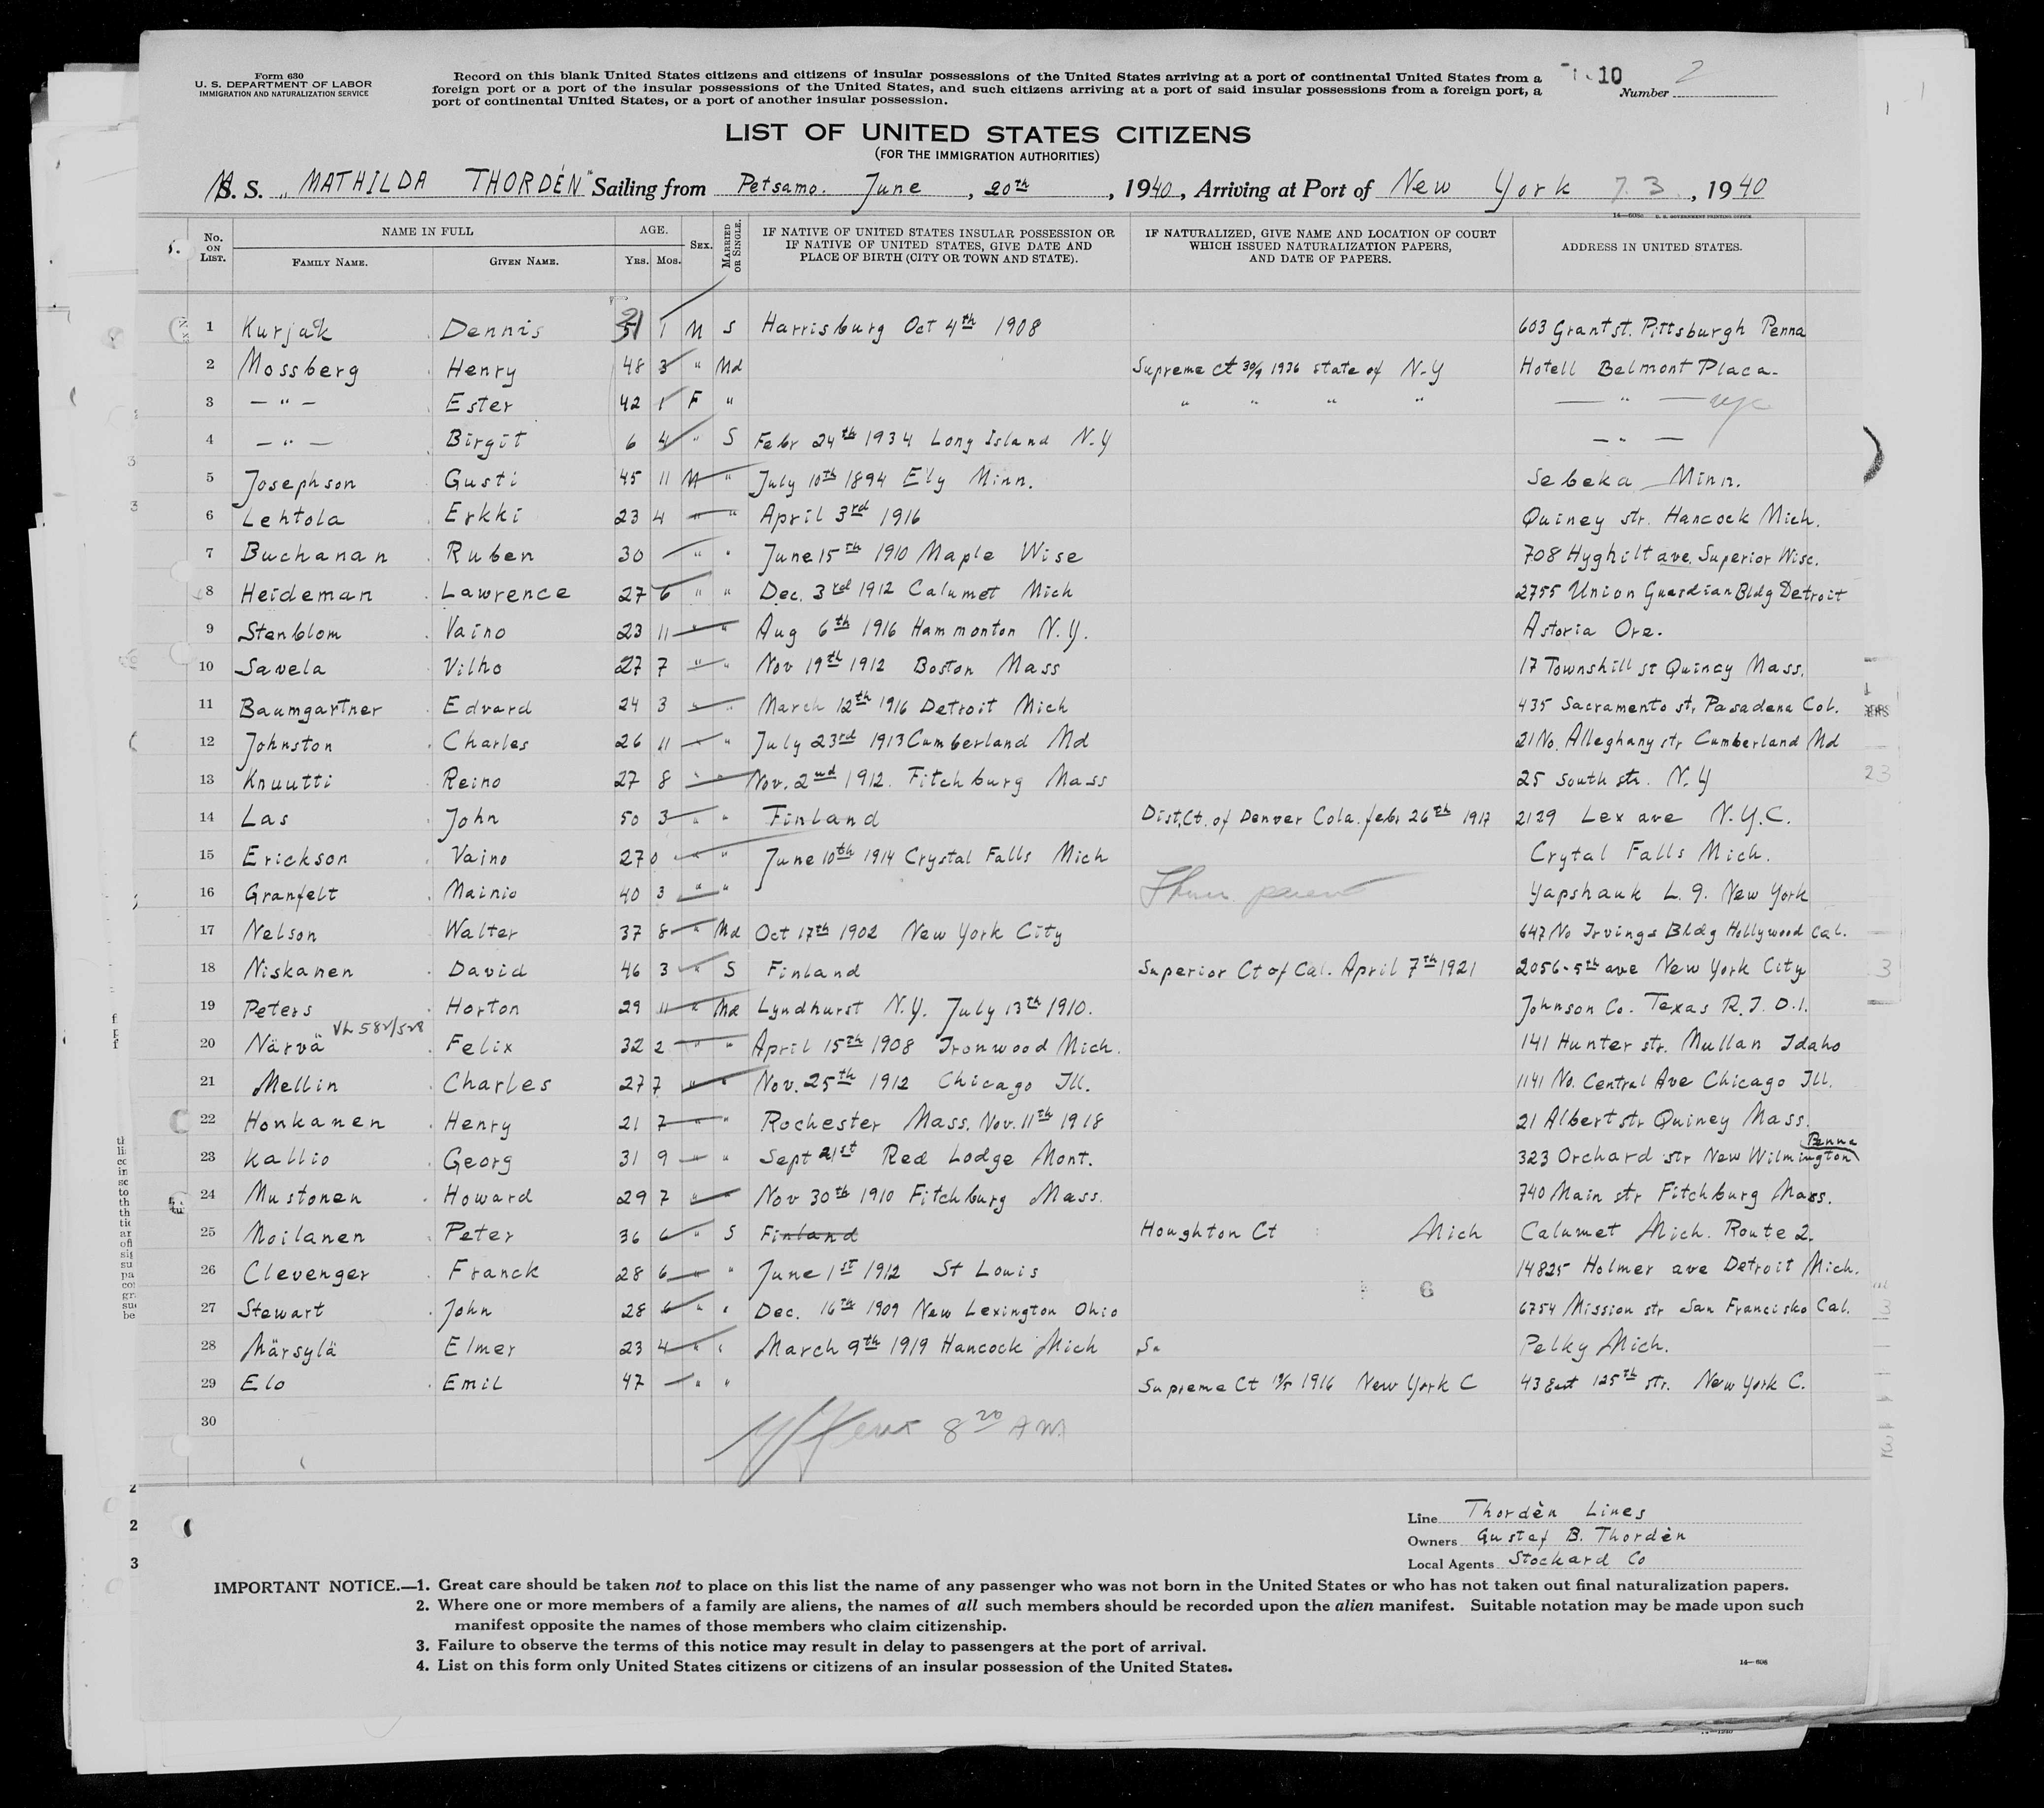 Form 630
U. S. DEPARTMENT OF LABOR
IMMIGRATION AND NATURALIZATION SERVICE
Record on this blank United States citizens and citizens of insular possessions of the United States arriving at a port of continental United States from a
foreign port or a port of the insular possessions of the United States, and such citizens arriving at a port of said insular possessions from a foreign port, a
port of continental United States, or a port of another insular possession.
10
Number 2
LIST OF UNITED STATES CITIZENS
(FOR THE IMMIGRATION AUTHORITIES)
S. S. „MATHILDA THORDÉN" Sailing from Petsamo. June, 20th, 1940, Arriving at Port of New York 7. 3., 1940
14—608 U. S. GOVERNMENT PRINTING OFFICE
No. ON LIST. NAME IN FULL FAMILY NAME. GIVEN NAME. AGE. YRS. MOS. SEX. MARRIED OR SINGLE. IF NATIVE OF UNITED STATES INSULAR POSSESSION OR IF NATIVE OF UNITED STATES, GIVE DATE AND PLACE OF BIRTH (CITY OR TOWN AND STATE). IF NATURALIZED, GIVE NAME AND LOCATION OF COURT WHICH ISSUED NATURALIZATION PAPERS, AND DATE OF PAPERS. ADDRESS IN UNITED STATES.
1 Kurjak Dennis 31 1 M S Harrisburg Oct 4th 1908 603 Grant st. Pittsburgh Penna
2 Mossberg Henry 48 3 " Md Supreme Ct 30/9 1936 state of N.Y Hotell Belmont Placa.
3 — " — Ester 42 1 F " " " " " — " — nyc
4 — " — Birgit 6 4 " S Febr 24th 1934 Long Island N.Y — " —
5 Josephson Gusti 45 11 M " July 10th 1894 Ely Minn. Sebeka Minn.
6 Lehtola Erkki 23 4 " " April 3rd 1916 Quiney str. Hancock Mich.
7 Buchanan Ruben 30 " " June 15th 1910 Maple Wise 708 Hyghilt ave. Superior Wisc.
8 Heideman Lawrence 27 6 " " Dec. 3rd 1912 Calumet Mich 2755 Union Guardian Bldg Detroit
9 Stenblom Vaino 23 11 " " Aug 6th 1916 Hammonton N.Y. Astoria Ore.
10 Savela Vilho 27 7 " " Nov 19th 1912 Boston Mass 17 Townshill st Quincy Mass.
11 Baumgartner Edvard 24 3 " " March 12th 1916 Detroit Mich 435 Sacramento str Pasadena Col.
12 Johnston Charles 26 11 " " July 23rd 1913 Cumberland Md 21 No. Alleghany str Cumberland Md
13 Knuutti Reino 27 8 " " Nov. 2nd 1912. Fitchburg Mass 25 South str. N.Y
14 Las John 50 3 " " Finland Dist.Ct. of Denver Cola. febr 26th 1917 2129 Lex ave N.Y.C.
15 Erickson Vaino 27 0 " " June 10th 1914 Crystal Falls Mich Crytal Falls Mich.
16 Granfelt Mainio 40 3 " " Yapshank L. g. New York
17 Nelson Walter 37 8 " Md Oct 17th 1902 New York City 647 No Irvings Bldg Hollywood Cal.
18 Niskanen David 46 3 " S Finland Superior Ct of Cal. April 7th 1921 2056-5th ave New York City
19 Peters Horton 29 11 " Md Lyndhurst N.Y. July 13th 1910. Johnson Co. Texas R.J.O.1.
20 Närvä Felix 32 2 " " April 15th 1908 Ironwood Mich. 141 Hunter str. Mullan Idaho
21 Mellin Charles 27 7 " " Nov. 25th 1912 Chicago Ill. 1141 No. Central Ave Chicago Ill.
22 Honkanen Henry 21 7 " " Rochester Mass. Nov. 11th 1918 21 Albert str Quiney Mass.
23 Kallio Georg 31 9 " " Sept 21st Red Lodge Mont. 323 Orchard str New Wilmington Penna
24 Mustonen Howard 29 7 " " Nov 30th 1910 Fitchburg Mass. 740 Main str Fitchburg Mass.
25 Moilanen Peter 36 6 " S Finland Houghton Ct Mich Calumet Mich. Route 2.
26 Clevenger Franck 28 6 " " June 1st 1912 St Louis 14825 Holmer ave Detroit Mich.
27 Stewart John 28 6 " " Dec. 16th 1909 New Lexington Ohio 6754 Mission str San Francisko Cal.
28 Märsylä Elmer 23 4 " " March 9th 1919 Hancock Mich Su Pelky Mich.
29 Elo Emil 47 " " Supreme Ct 1916 New York C 43 East 125th str. New York C.
30
8 20 A M
Line Thordèn Lines
Owners Gustaf B. Thordèn
Local Agents Stockard Co
IMPORTANT NOTICE.—1. Great care should be taken not to place on this list the name of any passenger who was not born in the United States or who has not taken out final naturalization papers.
2. Where one or more members of a family are aliens, the names of all such members should be recorded upon the alien manifest. Suitable notation may be made upon such
manifest opposite the names of those members who claim citizenship.
3. Failure to observe the terms of this notice may result in delay to passengers at the port of arrival.
4. List on this form only United States citizens or citizens of an insular possession of the United States.
14—608